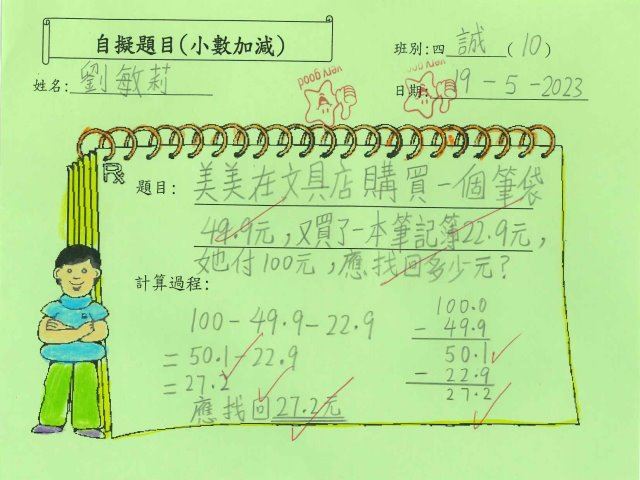 自擬題目(小數加減)
班別:四 誠 (10)
姓名: 劉敏莉
日期: 19-5-2023
very good
very good
題目: 美美在文具店購買一個筆袋
49.9元,又買了一本筆記簿22.9元,
她付100元,應找回多少元?
計算過程:
100-49.9-22.9
=50.1-22.9
=27.2
應找回27.2元
100.0
- 49.9
50.1
- 22.9
27.2